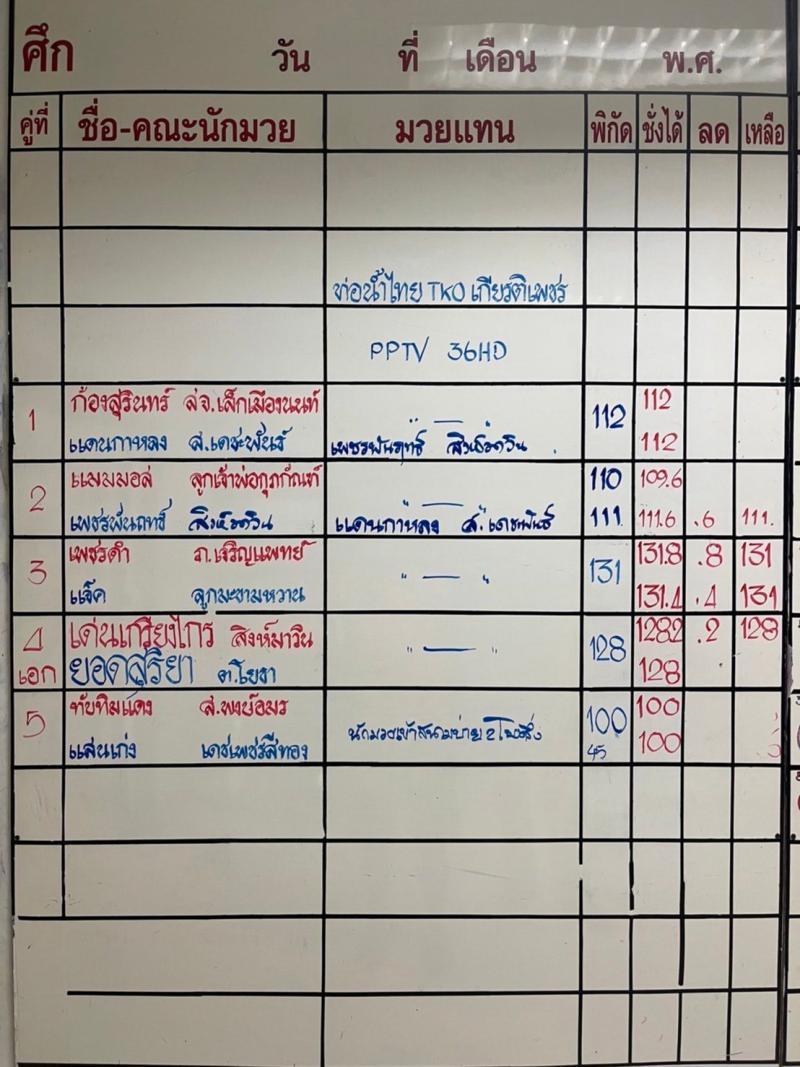 ศึก วัน ที่ เดือน พ.ศ.
คู่ที่ ชื่อ-คณะนักมวย มวยแทน พิกัด ชั่งได้ ลด เหลือ
ท่อน้ำไทย TKO เกียรติเพชร
PPTV 36HD
1 ก้องสุรินทร์ ส่จ.เล็กเมืองนนท์ 112 112
แดนกาหลง ส.เดชะพันธ์ เพชรพันฤทธิ์ สิงห์อควิน 112
2 แมมมอส ลูกเจ้าพ่อกุภกัณฑ์ 110 109.6
เพชรพันฤทธิ์ สิงห์อควิน แดนกาหลง ส.เดชะพันธ์ 111. 111.6 .6 111.
3 เพชรดำ ภ.เจริญแพทย์ " — " 131 131.8 .8 131
แจ็ค ลูกมะขามหวาน 131.4 .4 131
4 เด่นเกรียงไกร สิงห์มาวิน " — " 128 128.2 .2 128
เอก ยอดสุริยา ต.โยธา 128
5 ทับทิมแดง 100 100
แสนเก่ง เดชเพชรสีทอง นักมวยเข้าสนามบ่าย 2 โมงครึ่ง 45 100